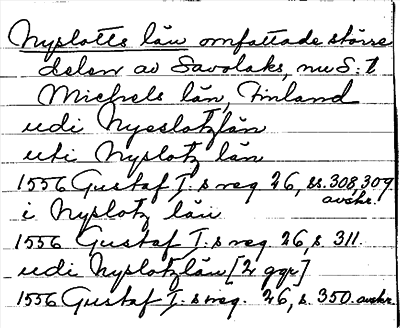 Nyslotts län omfattade större
delen av Savolaks, nu S:t
Michels län, Finland
udi Nyeslotzlän
uti Nyslotz län
1556 Gustaf I:s reg 26, ss. 308, 309
avskr.
i Nyslotz län
1556 Gustaf I:s reg. 26, s. 311.
udi Nyslotzlän [2 ggr]
1556 Gustaf I:s reg. 26, s. 350. avskr.